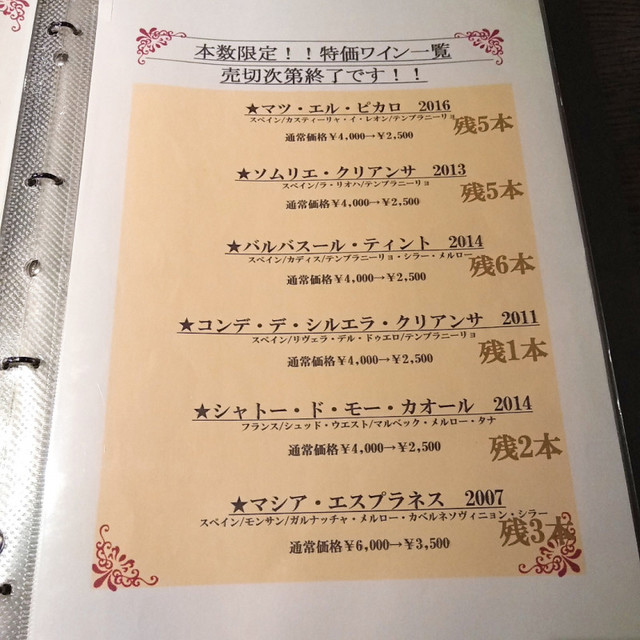 本数限定！！特価ワイン一覧
売切次第終了です！！
★マツ・エル・ピカロ　2016
スペイン/カスティーリャ・イ・レオン/テンプラニーリョ
残5本
通常価格￥4,000→￥2,500
★ソムリエ・クリアンサ　2013
スペイン/ラ・リオハ/テンプラニーリョ
残5本
通常価格￥4,000→￥2,500
★バルバスール・ティント　2014
スペイン/カディス/テンプラニーリョ・シラー・メルロー
残6本
通常価格￥4,000→￥2,500
★コンデ・デ・シルエラ・クリアンサ　2011
スペイン/リヴェラ・デル・ドゥエロ/テンプラニーリョ
残1本
通常価格￥4,000→￥2,500
★シャトー・ド・モー・カオール　2014
フランス/シュッド・ウエスト/マルベック・メルロー・タナ
残2本
通常価格￥4,000→￥2,500
★マシア・エスプラネス　2007
スペイン/モンサン/ガルナッチャ・メルロー・カベルネソヴィニョン・シラー
残3本
通常価格￥6,000→￥3,500